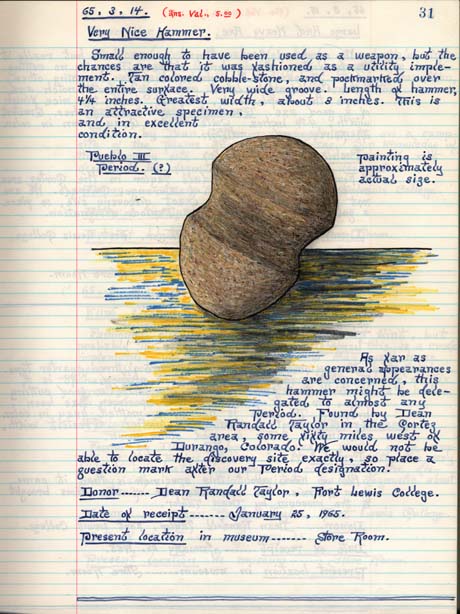 65. 3. 14. (Ins. Val., 5.00) 31
Very Nice Hammer.
Small enough to have been used as a weapon, but the
chances are that it was fashioned as a utility imple-
ment. Tan colored cobble-stone, and pockmarked over
the entire surface. Very wide groove. Length of hammer,
4¼ inches. Greatest width, about 3 inches. This is
an attractive specimen,
and in excellent
condition.
Pueblo III
Period. (?)
Painting is
approximately
actual size.
As far as
general appearances
are concerned, this
hammer might be dele-
gated to almost any
Period. Found by Dean
Randall Taylor in the Cortez
area, some fifty miles west of
Durango, Colorado. We would not be
able to locate the discovery site exactly, so place a
question mark after our Period designation.
Donor ------ Dean Randall Taylor, Fort Lewis College.
Date of receipt ------- January 25, 1965.
Present location in museum ------- Store Room.